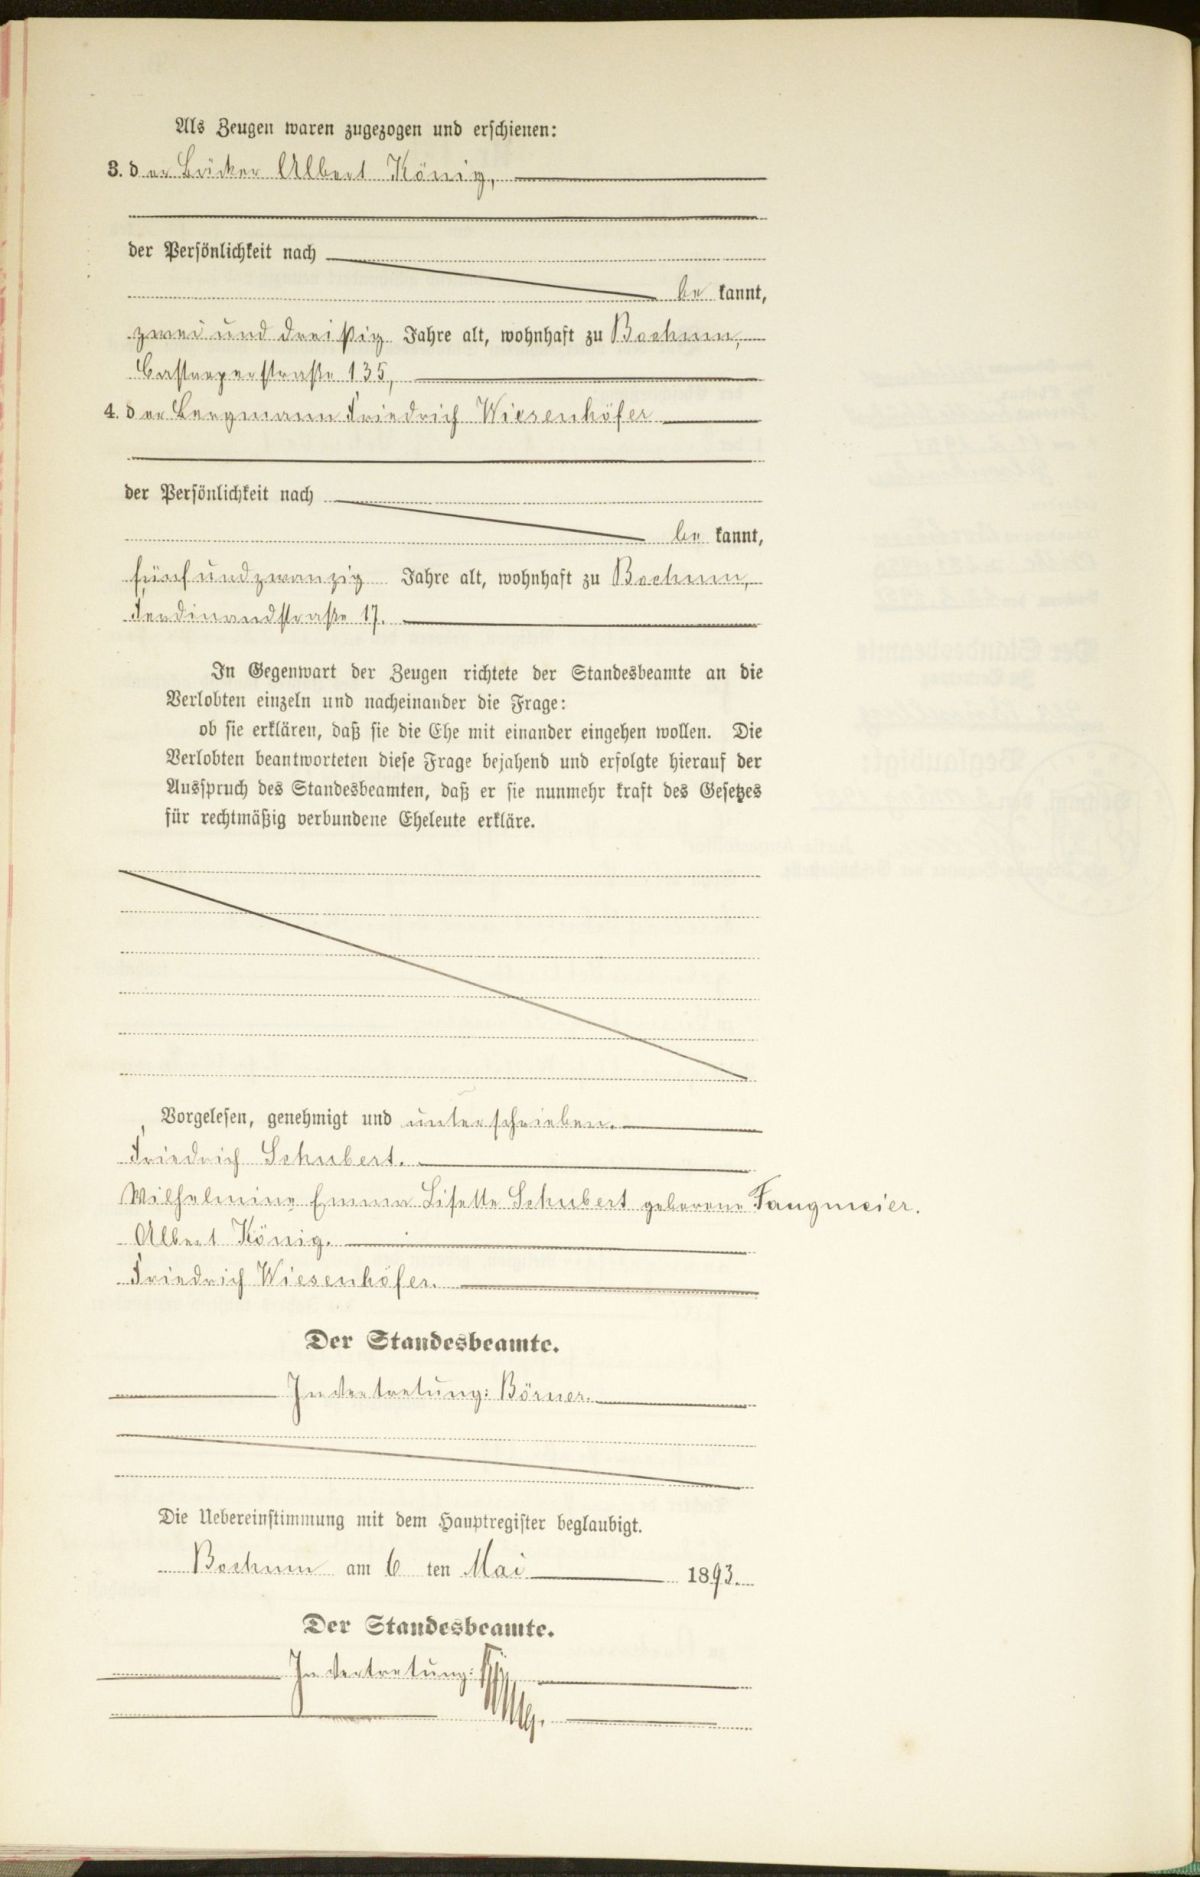 Als Zeugen waren zugezogen und erschienen:
3. der Bäcker Albert König,
der Persönlichkeit nach
be kannt,
zwei und dreißig Jahre alt, wohnhaft zu Bochum,
Castroperstraße 135,
4. der Bergmann Friedrich Wiesenhöfer
der Persönlichkeit nach
be kannt,
fünf und zwanzig Jahre alt, wohnhaft zu Bochum,
Ferdinandstraße 17.
In Gegenwart der Zeugen richtete der Standesbeamte an die
Verlobten einzeln und nacheinander die Frage:
ob sie erklären, daß sie die Ehe mit einander eingehen wollen. Die
Verlobten beantworteten diese Frage bejahend und erfolgte hierauf der
Ausspruch des Standesbeamten, daß er sie nunmehr kraft des Gesetzes
für rechtmäßig verbundene Eheleute erkläre.
Vorgelesen, genehmigt und unterschrieben.
Friedrich Schubert.
Wilhelmine Emma Lisette Schubert geborene Fangmeier.
Albert König.
Friedrich Wiesenhöfer.
Der Standesbeamte.
In Vertretung: Börner.
Die Uebereinstimmung mit dem Hauptregister beglaubigt.
Bochum am 6 ten Mai 1893.
Der Standesbeamte.
In Vertretung: